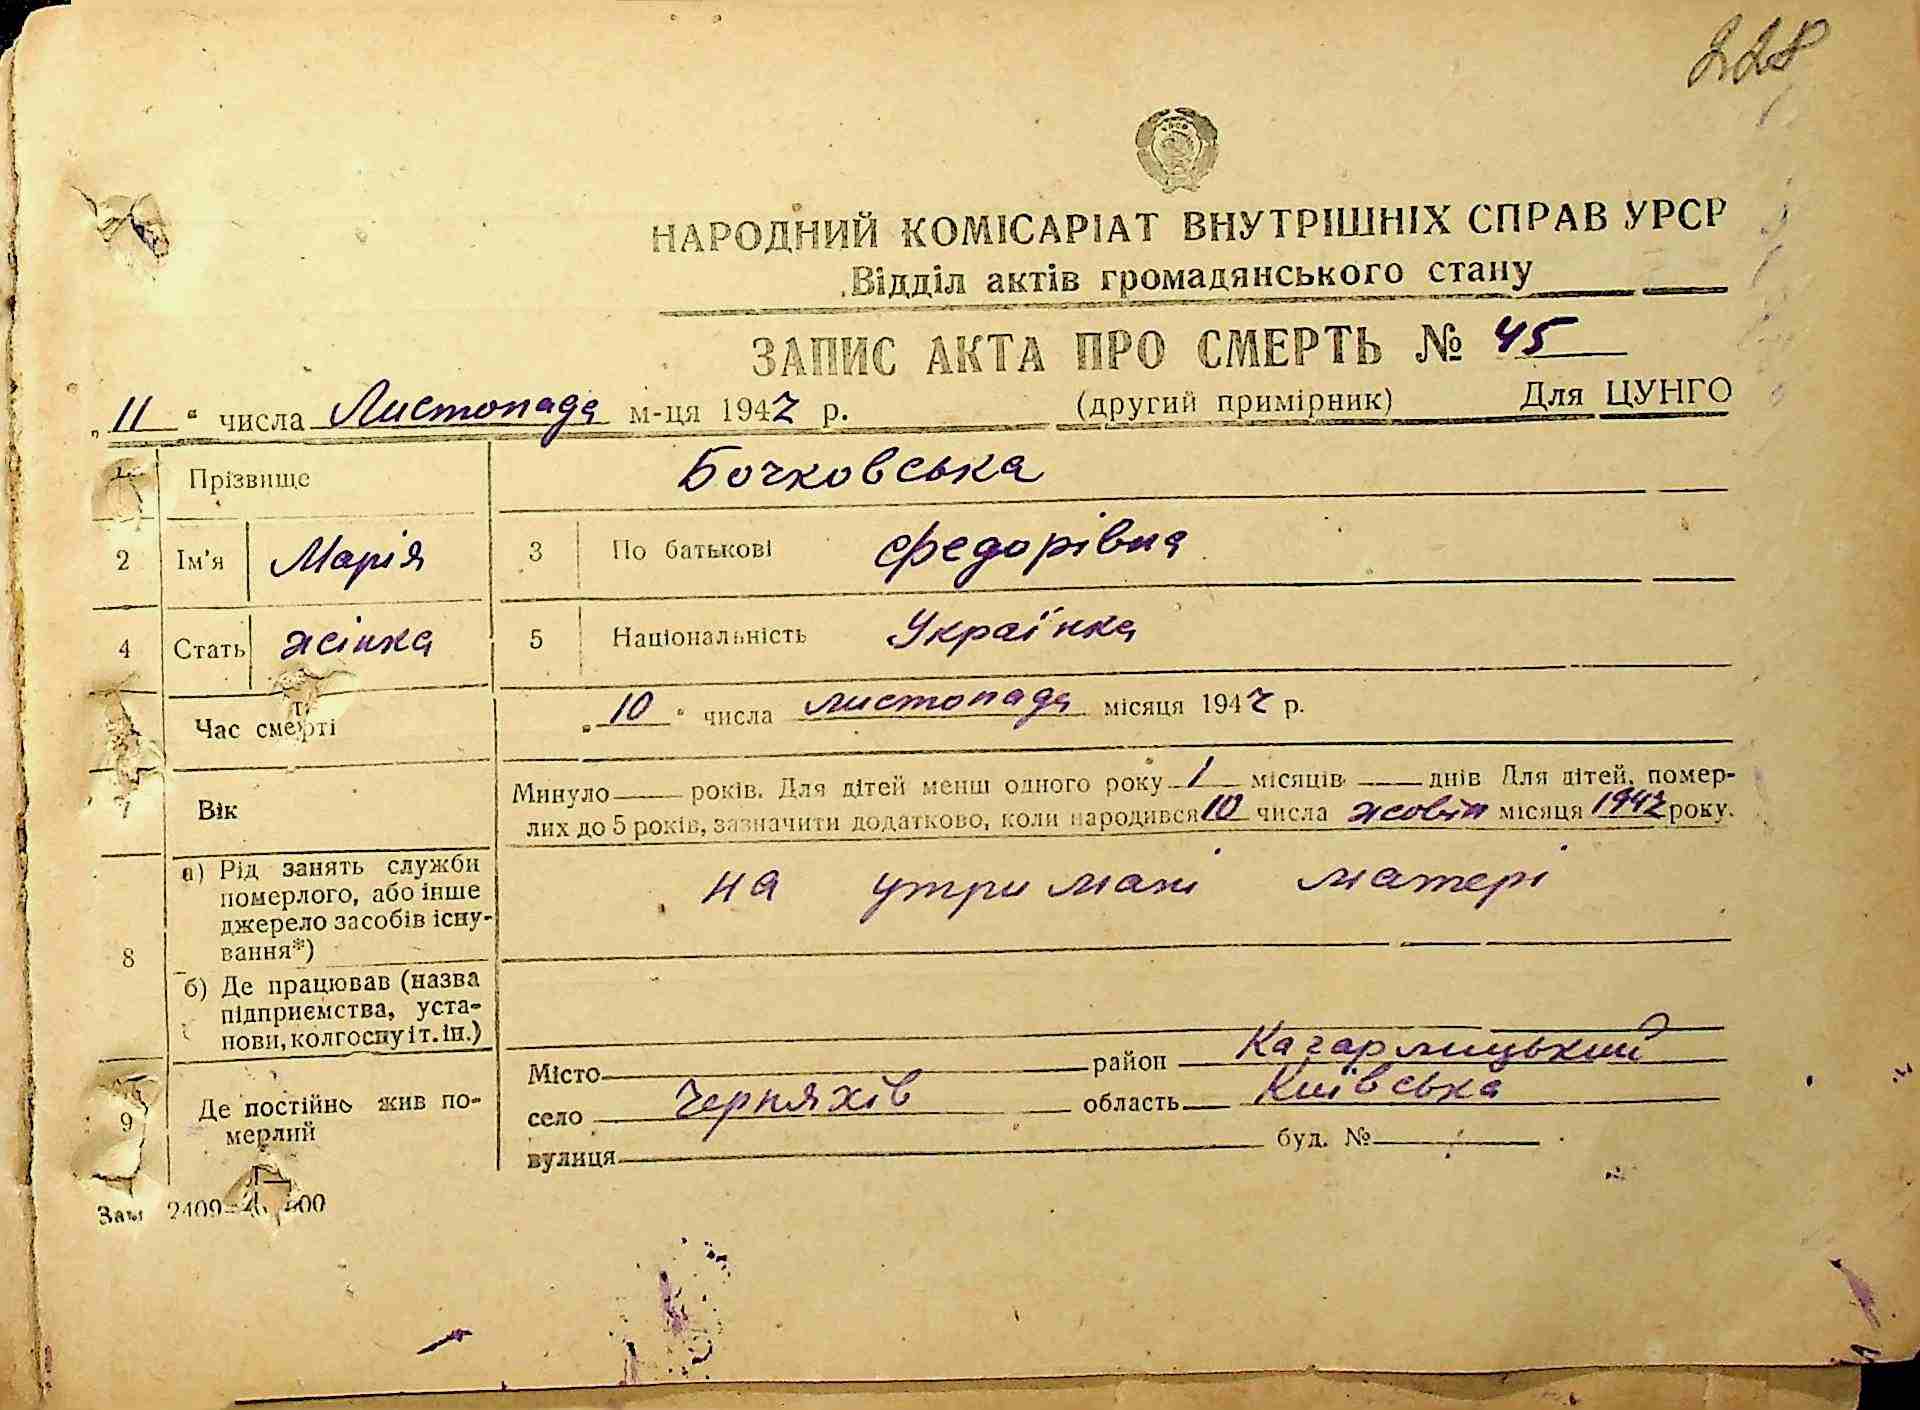 228
НАРОДНИЙ КОМІСАРІАТ ВНУТРІШНІХ СПРАВ УРСР
Відділ актів громадянського стану
ЗАПИС АКТА ПРО СМЕРТЬ № 45
„ 11 " числа Листопада м-ця 1947 р. (другий примірник) Для ЦУНГО
Прізвище Бочковська
2 Ім'я Марія 3 По батькові Федорівна
4 Стать жінка 5 Національність Українка
Час смерті „ 10 " числа листопада місяця 1947 р.
7 Вік Минуло — років. Для дітей менш одного року 1 місяців — днів Для дітей, помер-
лих до 5 років, зазначити додатково, коли народився 10 числа жовтн місяця 1947 року.
8 а) Рід занять служби
померлого, або інше
джерело засобів існу-
вання*) на утримані матері
б) Де працював (назва
підприємства, уста-
нови, колгоспу і т. ін.)
9 Де постійно жив по-
мерлий
Місто район Кагарлицький
село Черняхів область Київська
вулиця буд. №
Зам 2409